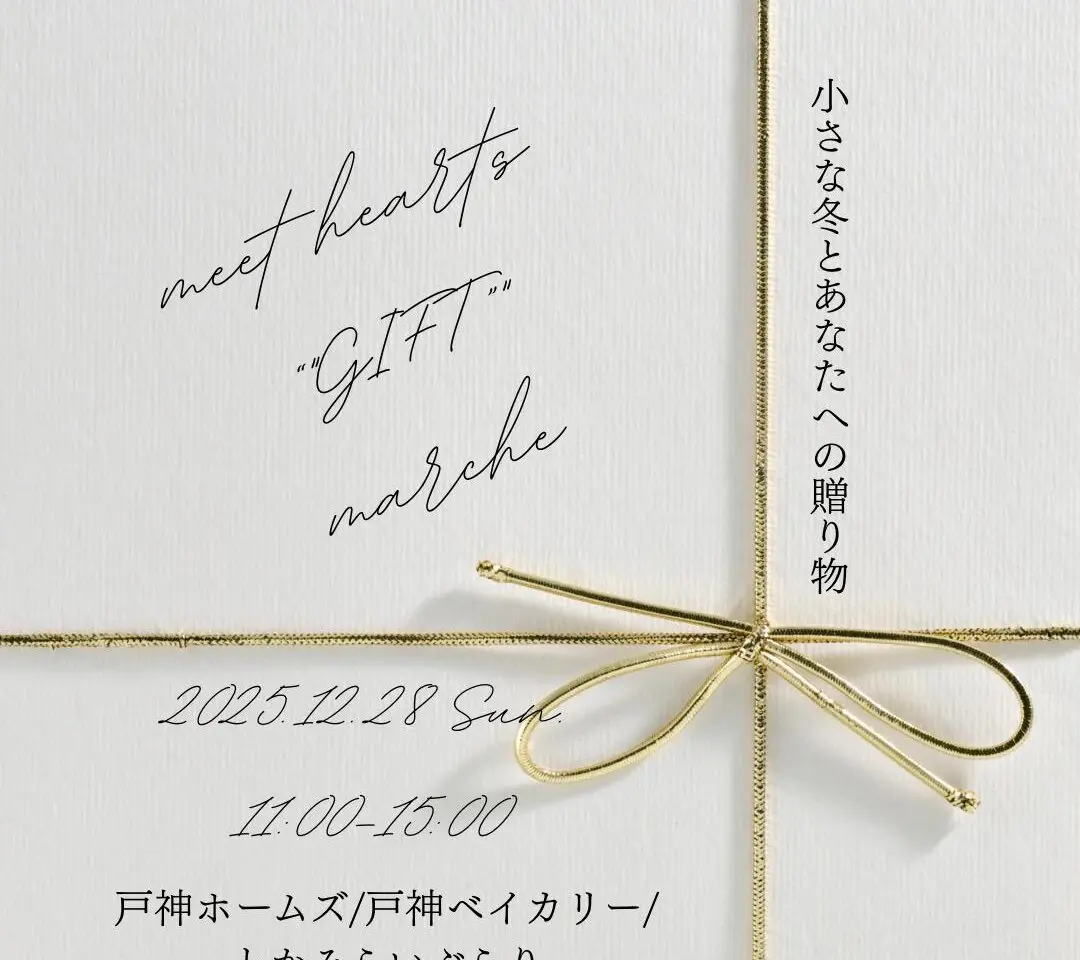 meet hearts
""GIFT""
marche
小さな冬とあなたへの贈り物
2025.12.28 Sun.
11:00-15:00
戸神ホームズ/戸神ベイカリー/